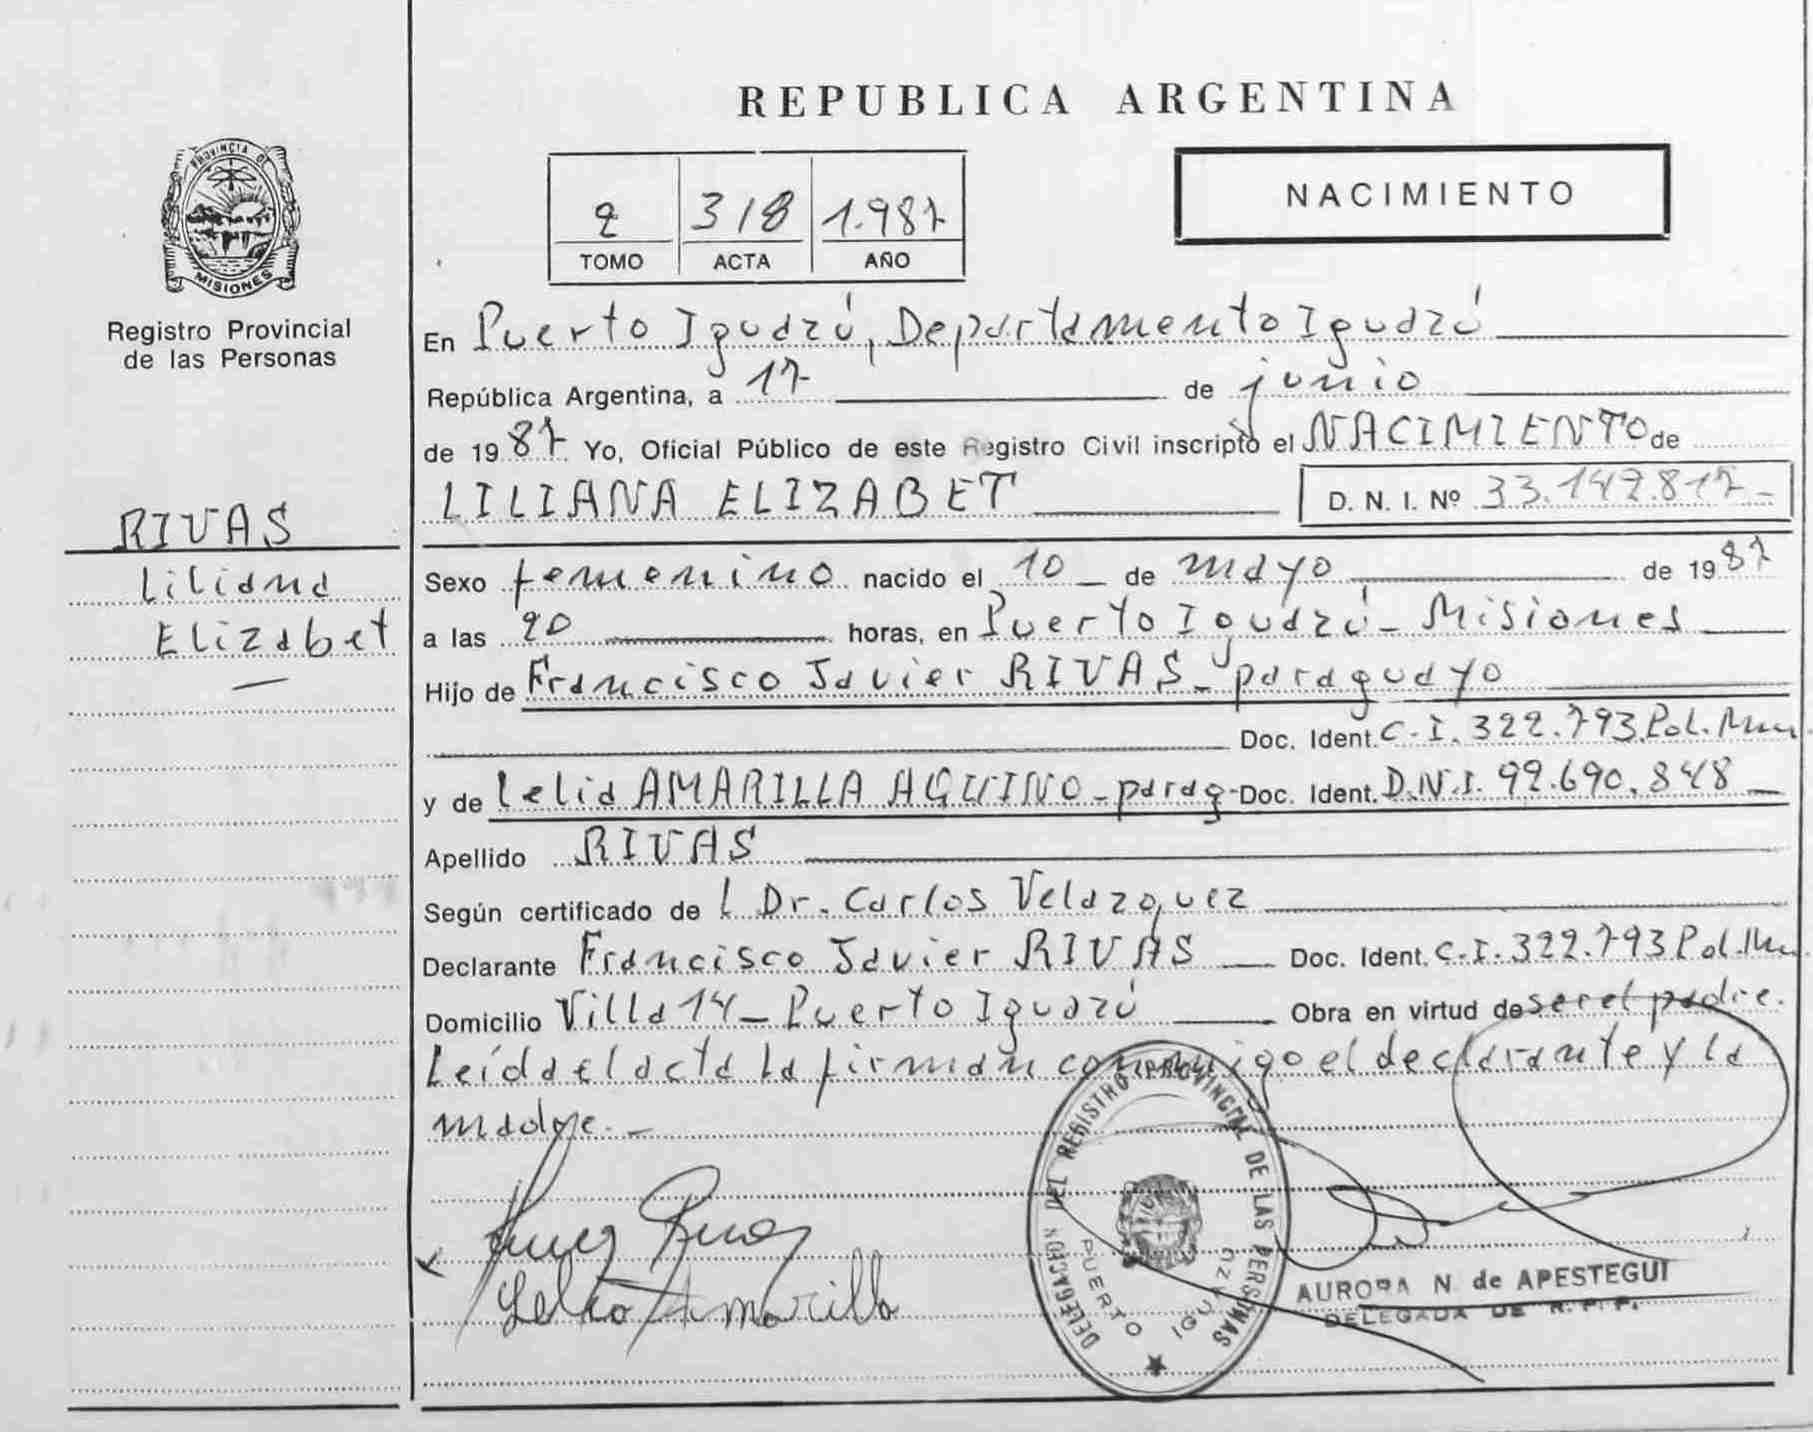 REPUBLICA ARGENTINA
PROVINCIA DE
MISIONES
Registro Provincial
de las Personas
2 318 1.987
TOMO ACTA AÑO
NACIMIENTO
En Puerto Iguazú, Departamento Iguazú
República Argentina, a 17 de junio
de 1987 Yo, Oficial Público de este Registro Civil inscripto el NACIMIENTO de
LILIANA ELIZABET D. N. I. Nº 33.147.817-
RIVAS
Liliana
Elizabet
Sexo femenino nacido el 10 de mayo de 1987
a las 20 horas, en Puerto Iguazú - Misiones
Hijo de Francisco Javier RIVAS - paraguayo
Doc. Ident. C.I. 322.793 Pol.
y de Lelia AMARILLA AQUINO - parag- Doc. Ident. D.N.I. 92.690.848
Apellido RIVAS
Según certificado de l Dr. Carlos Velazquez
Declarante Francisco Javier RIVAS Doc. Ident. C.I. 322.793 Pol.
Domicilio Villa 14 - Puerto Iguazú Obra en virtud de ser el padre.
Leída el acta la firman conmigo el declarante y la
madre. -
Lelia Amarilla
DELEGACION DEL REGISTRO PROVINCIAL DE LAS PERSONAS
PUERTO IGUAZU
AURORA N. de APESTEGUI
DELEGADA DE R. P. P.